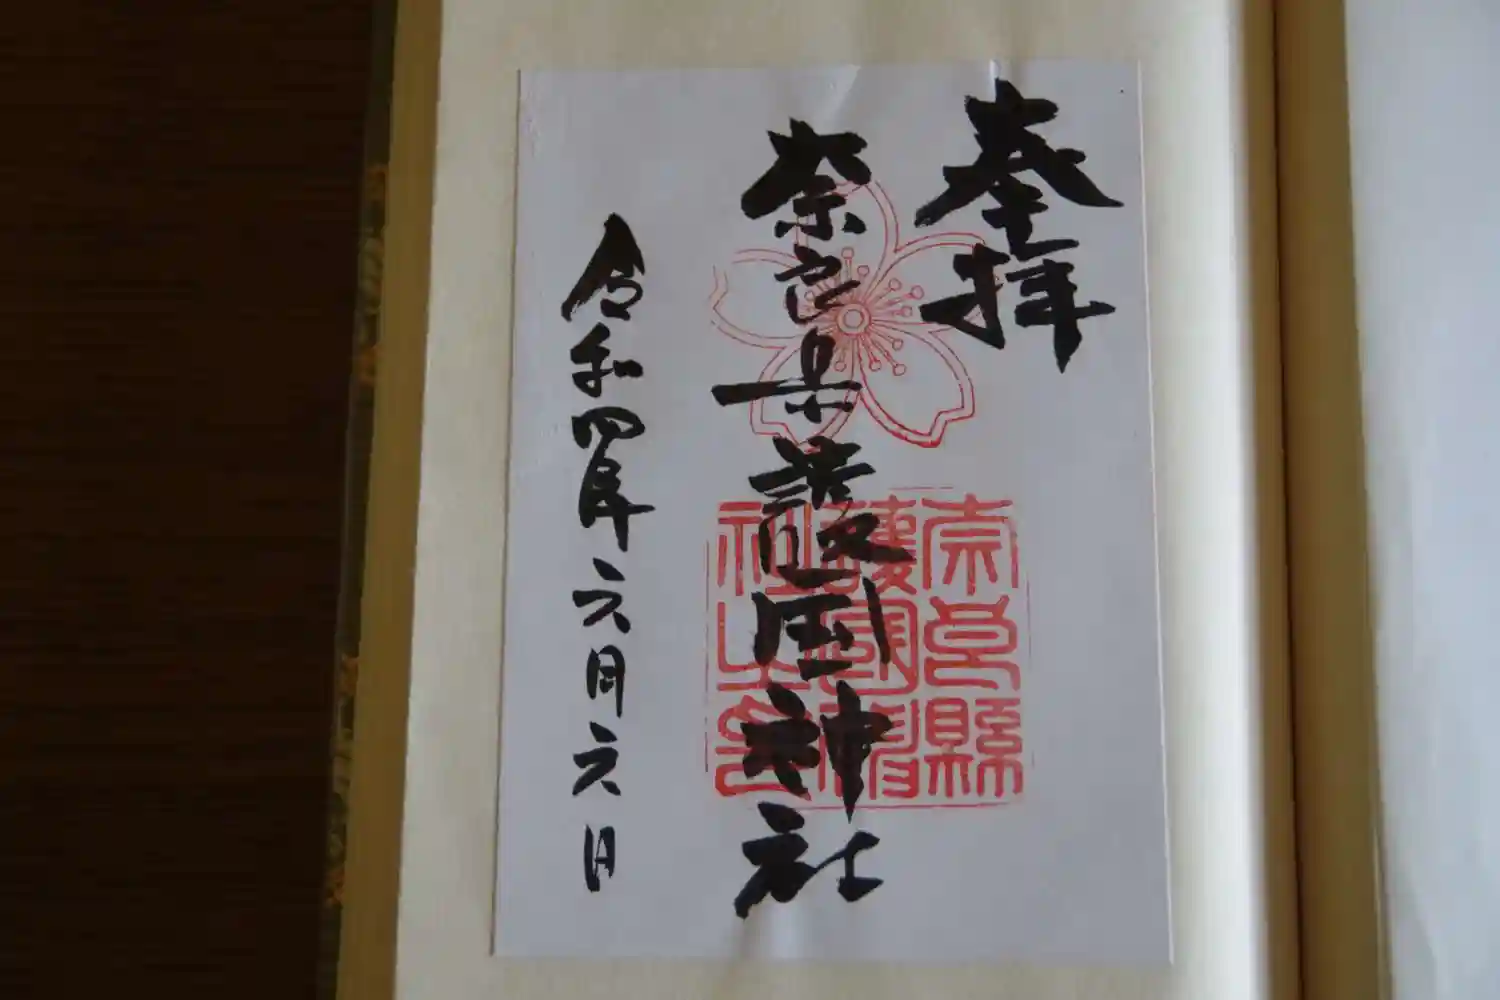 奉拝
奈良県護国神社
奈良縣
護國神
社之印
令和四年六月六日